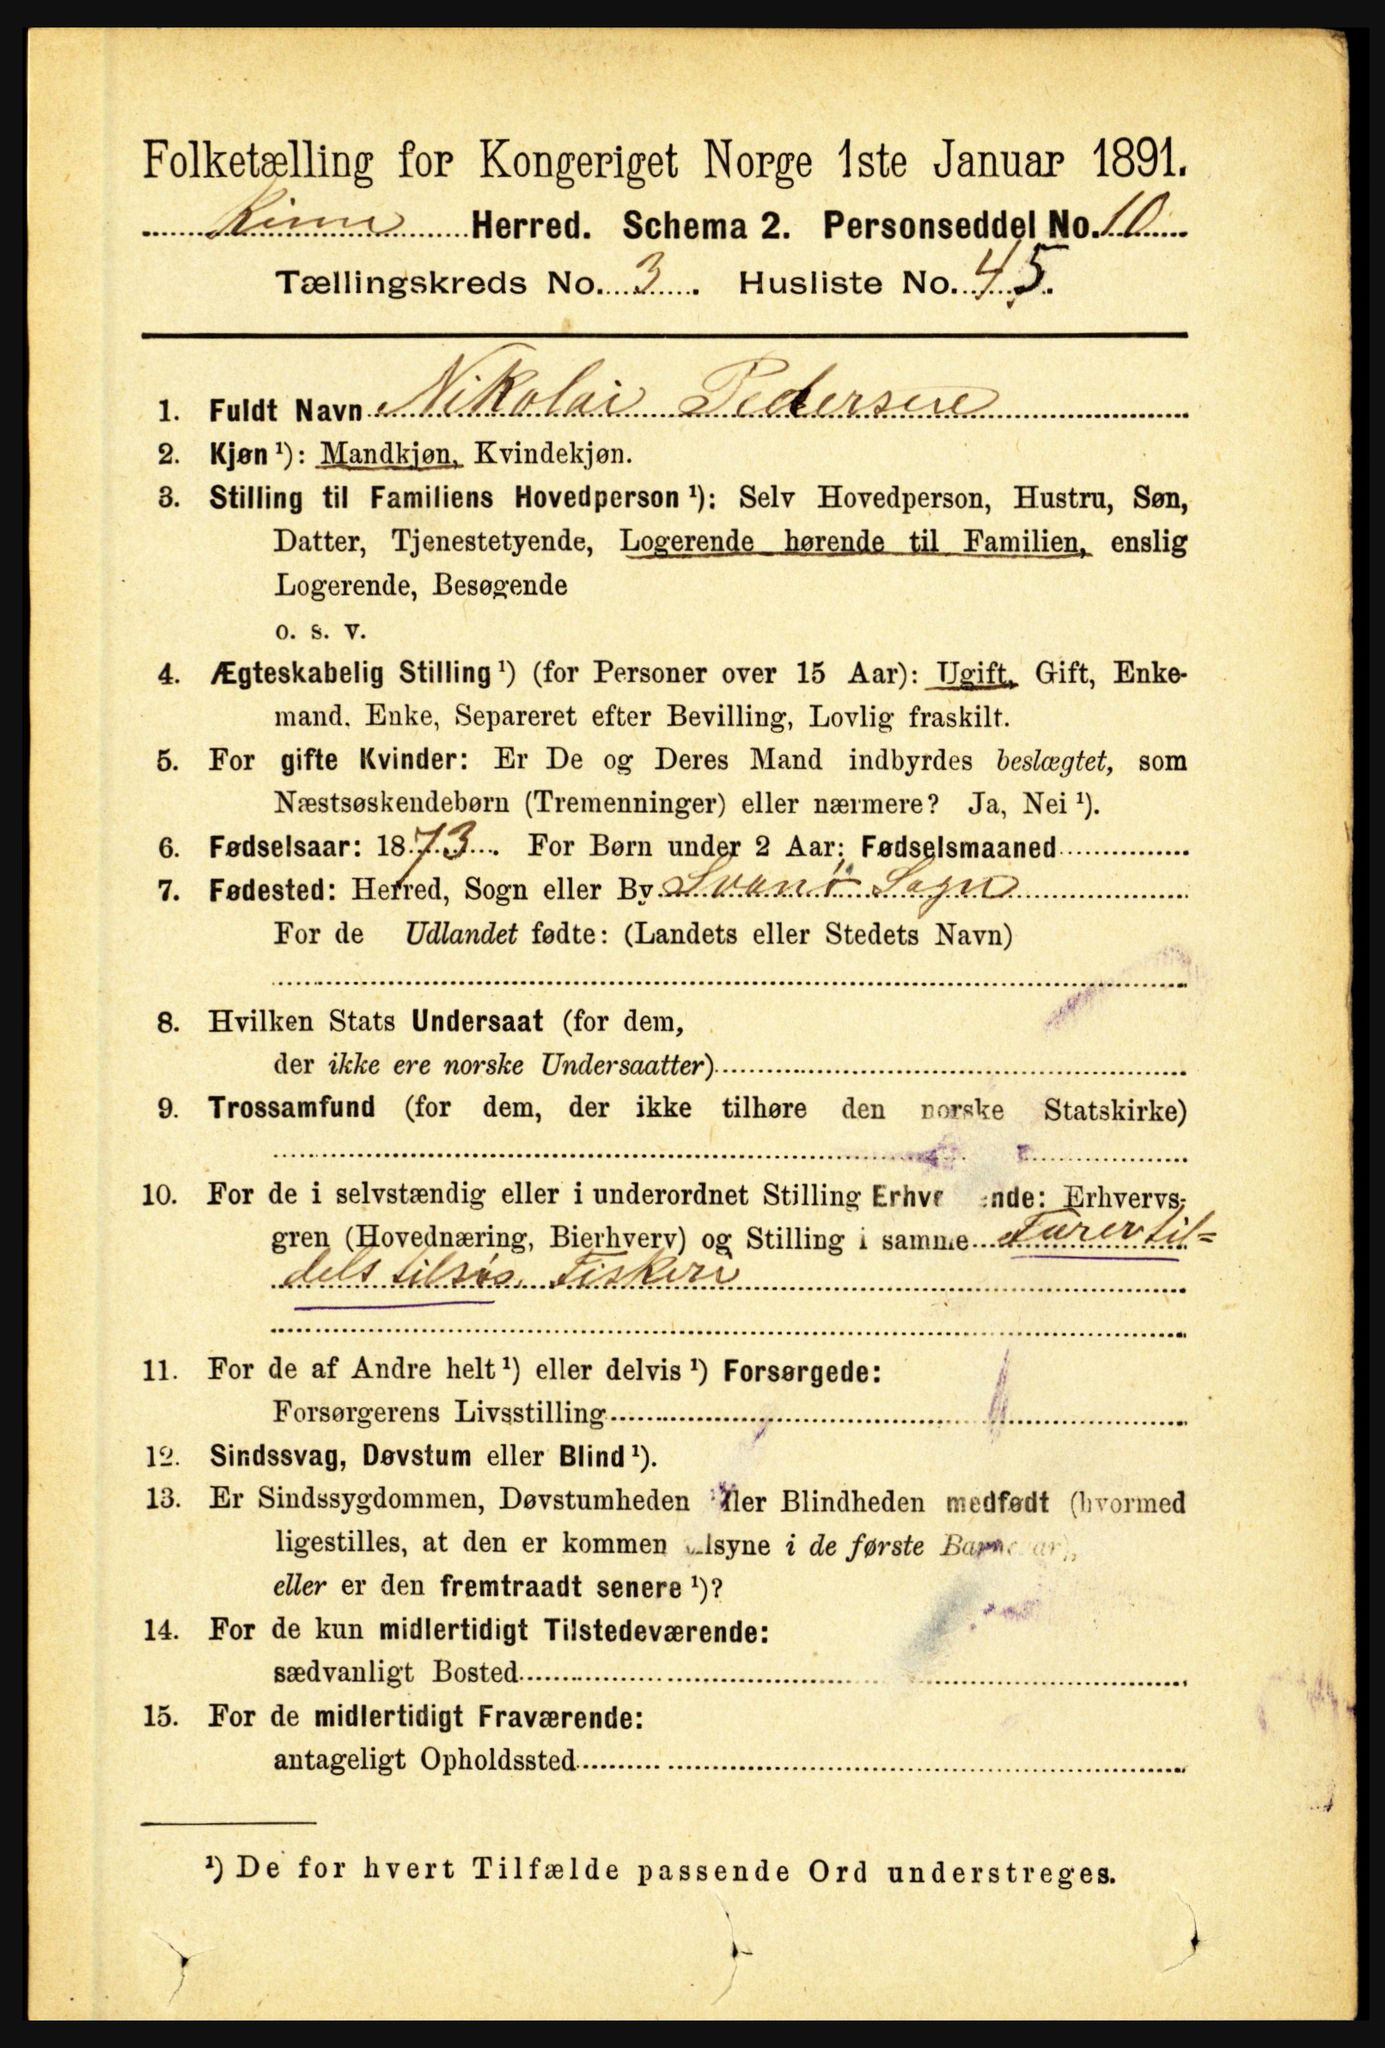 Folketælling for Kongeriget Norge 1ste Januar 1891.
Kinn Herred. Schema 2. Personseddel No. 10
Tællingskreds No. 3. Husliste No. 45.
1. Fuldt Navn Nikolai Pedersen
2. Kjøn ¹): Mandkjøn, Kvindekjøn.
3. Stilling til Familiens Hovedperson ¹): Selv Hovedperson, Hustru, Søn,
Datter, Tjenestetyende, Logerende hørende til Familien, enslig
Logerende, Besøgende
o. s. v.
4. Ægteskabelig Stilling ¹) (for Personer over 15 Aar): Ugift, Gift, Enke-
mand, Enke, Separeret efter Bevilling, Lovlig fraskilt.
5. For gifte Kvinder: Er De og Deres Mand indbyrdes beslægtet, som
Næstsøskendebørn (Tremenninger) eller nærmere? Ja, Nei ¹).
6. Fødselsaar: 1873. For Børn under 2 Aar: Fødselsmaaned
7. Fødested: Herred, Sogn eller By Svanø Sogn
For de Udlandet fødte: (Landets eller Stedets Navn)
8. Hvilken Stats Undersaat (for dem,
der ikke ere norske Undersaatter)
9. Trossamfund (for dem, der ikke tilhøre den norske Statskirke)
10. For de i selvstændig eller i underordnet Stilling Erhve nde: Erhvervs-
gren (Hovednæring, Bierhverv) og Stilling i samme Farer til-
dels tilsøs, Fisker
11. For de af Andre helt ¹) eller delvis ¹) Forsørgede:
Forsørgerens Livsstilling
12. Sindssvag, Døvstum eller Blind ¹).
13. Er Sindssygdommen, Døvstumheden eller Blindheden medfødt (hvormed
ligestilles, at den er kommen tilsyne i de første Barneaar),
eller er den fremtraadt senere ¹)?
14. For de kun midlertidigt Tilstedeværende:
sædvanligt Bosted
15. For de midlertidigt Fraværende:
antageligt Opholdssted
¹) De for hvert Tilfælde passende Ord understreges.